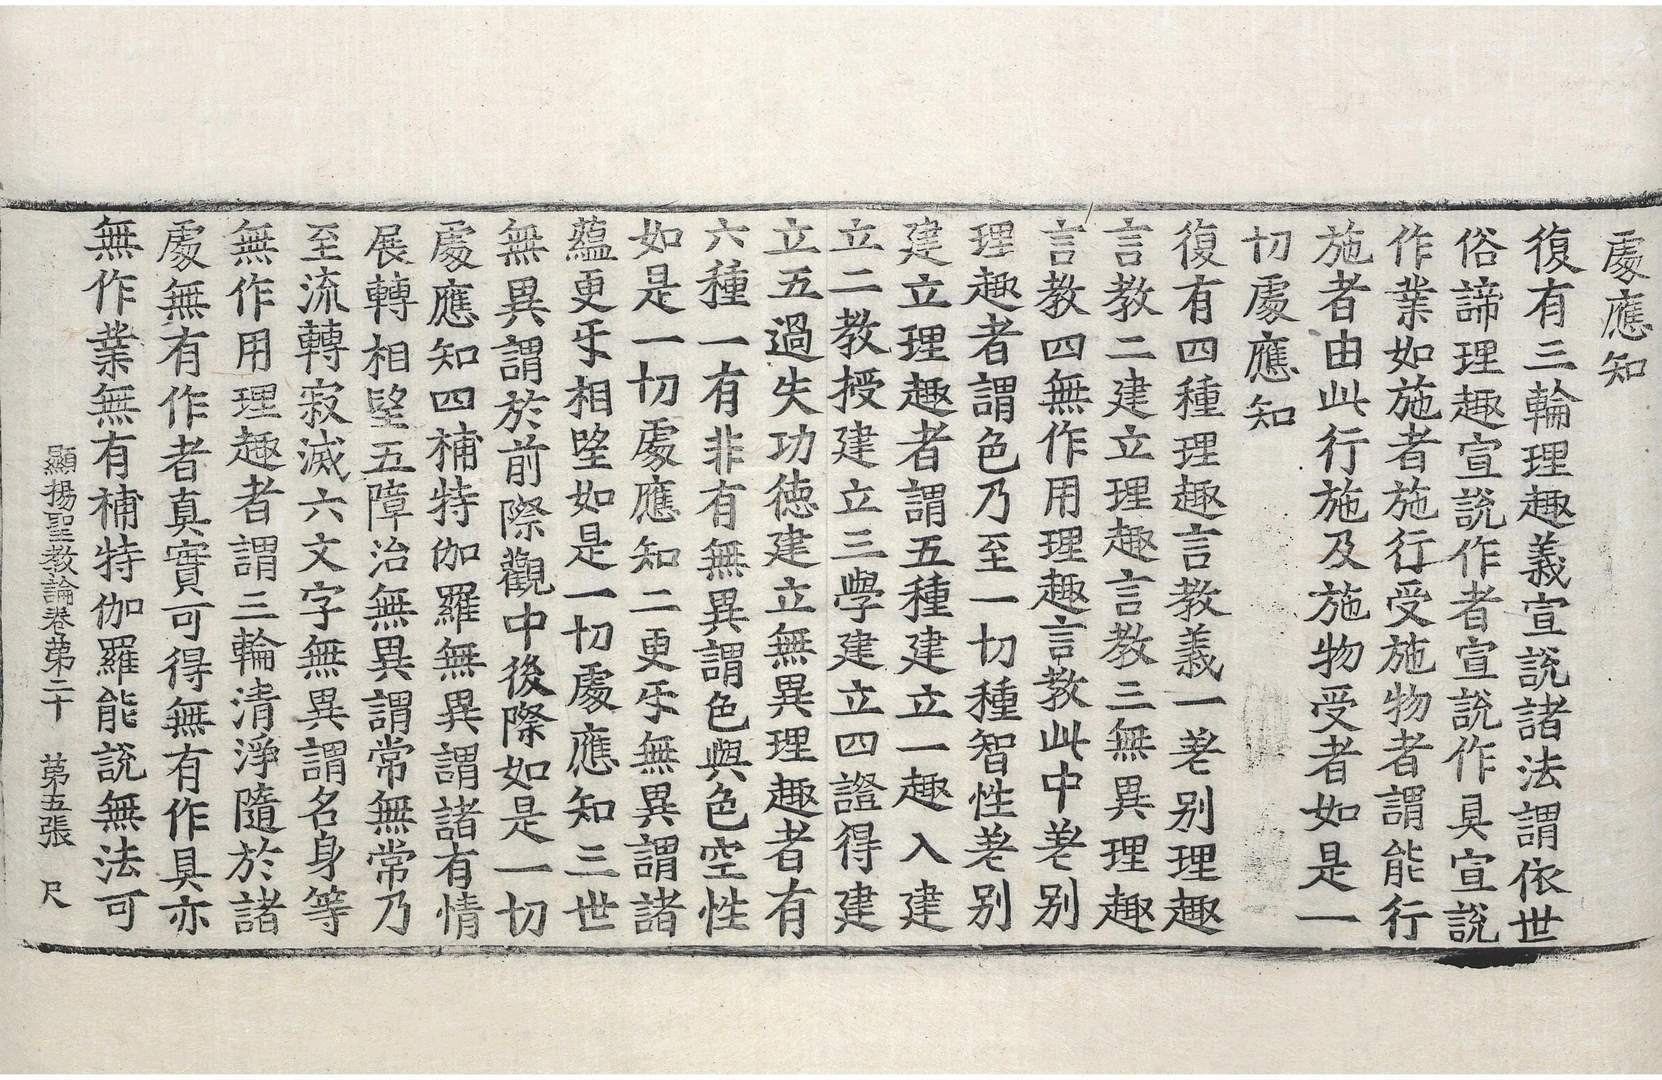 處應知
復有三輪理趣義宣說諸法謂依世
俗諦理趣宣說作者宣說作具宣說
作業如施者施行受施物者謂能行
施者由此行施及施物受者如是一
切處應知
復有四種理趣言教義一差別理趣
言教二建立理趣言教三無異理趣
言教四無作用理趣言教此中差別
理趣者謂色乃至一切種智性差別
建立理趣者謂五種建立一趣入建
立二教授建立三學建立四證得建
立五過失功德建立無異理趣者有
六種一有非有無異謂色與色空性
如是一切處應知二更乐無異謂諸
蘊更乐相望如是一切處應知三世
無異謂於前際觀中後際如是一切
處應知四補特伽羅無異謂諸有情
展轉相望五障治無異謂常無常乃
至流轉寂滅六文字無異謂名身等
無作用理趣者謂三輪清淨隨於諸
處無有作者真實可得無有作具亦
無作業無有補特伽羅能說無法可
顯揚聖教論卷第二十 第五張 尺